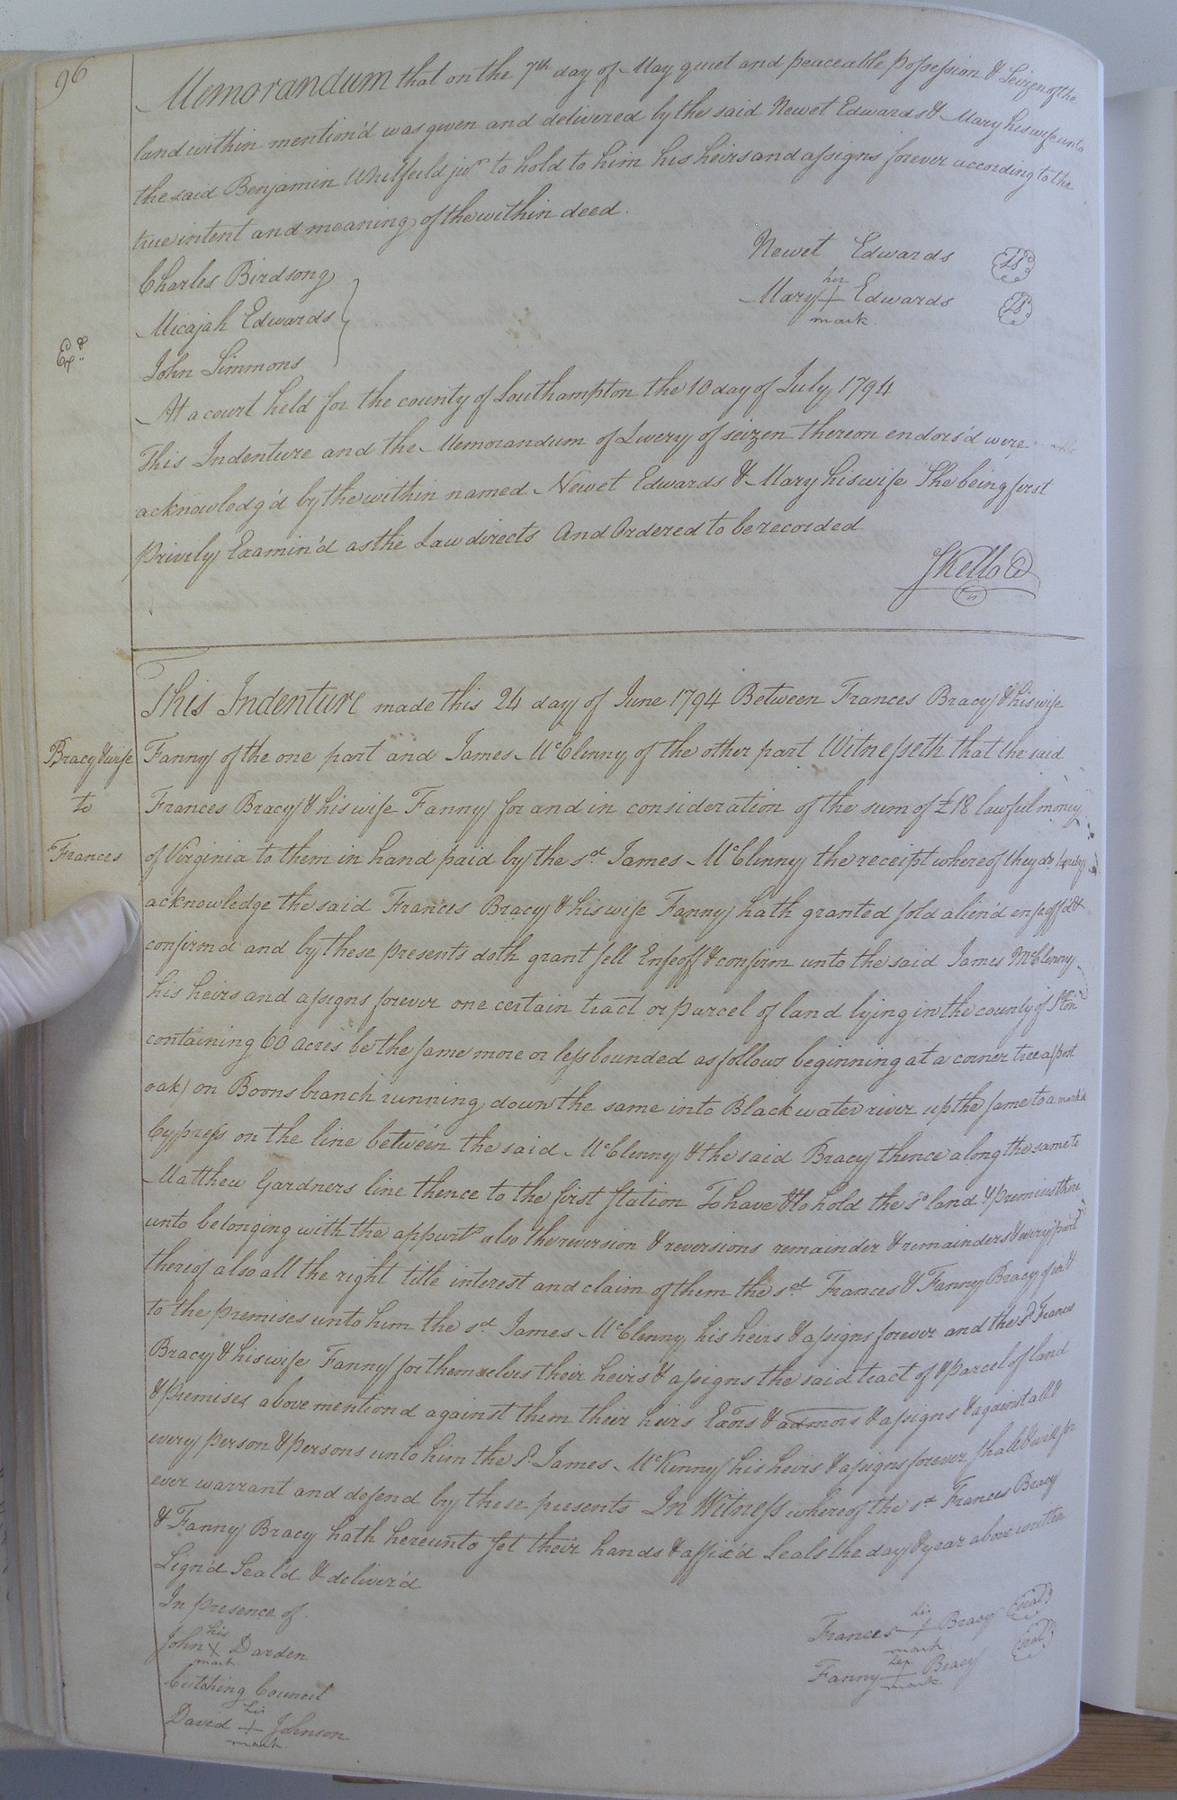 96
Memorandum that on the 7th day of May quiet and peaceable possession & Seizen of the
land within mention'd was given and delivered by the said Newet Edwards & Mary his wife unto
the said Benjamin Whitfield junr to hold to him his heirs and assigns forever according to the
true intent and meaning of the within deed.
Newet Edwards LS
Mary her + mark Edwards LS
Charles Birdsong
Micajah Edwards
John Simmons
Exd
At a court held for the county of Southampton the 10 day of July 1794
This Indenture and the Memorandum of Livery of seizen thereon endors'd were
acknowledg'd by the within named Newet Edwards & Mary his wife She being first
Privily Examin'd as the Law directs And Ordered to be recorded
SKello C
This Indenture made this 24 day of June 1794 Between Frances Bracy & his wife
Bracy & wife
to
Frances
Fanny of the one part and James McClenny of the other part Witnesseth that the said
Frances Bracy & his wife Fanny for and in consideration of the sum of £18 lawful money
of Virginia to them in hand paid by the sd James McClenny the receipt whereof they do hereby
acknowledge the said Frances Bracy & his wife Fanny hath granted sold alien'd enfeoff'd &
confirm'd and by these presents doth grant sell Enfeoff & confirm unto the said James McClenny
his heirs and assigns forever one certain tract or parcel of land lying in the county of Ston
containing 60 acres be the same more or less bounded as follows beginning at a corner tree a post
oak) on Boons branch running down the same into Blackwater river up the same to a markd
Cypress on the line between the said McClenny & the said Bracy thence along the same to
Matthew Gardners line thence to the first station To have & to hold the sd land & premises there
unto belonging with the appurts also the reversion & reversions remainder & remainders & every part
thereof also all the right title interest and claim of them the sd Frances & Fanny Bracy of in &
to the premises unto him the sd James McClenny his heirs & assigns forever and the sd Frances
Bracy & his wife Fanny for themselves their heirs & assigns the said tract of & parcel of land
& premises above mentiond against them their heirs Exors & admors & assigns & against all &
every person & persons unto him the sd James McKinny his heirs & assigns forever shall & will for
ever warrant and defend by these presents In Witness whereof the sd Frances Bracy
& Fanny Bracy hath hereunto set their hands & affix'd Seals the day & year above written
Sign'd Seal'd & deliver'd
In presence of
Frances his + mark Bracy Seal
Fanny her + mark Bracy Seal
John his + mark Darden
Cutching Council
David his + mark Johnson